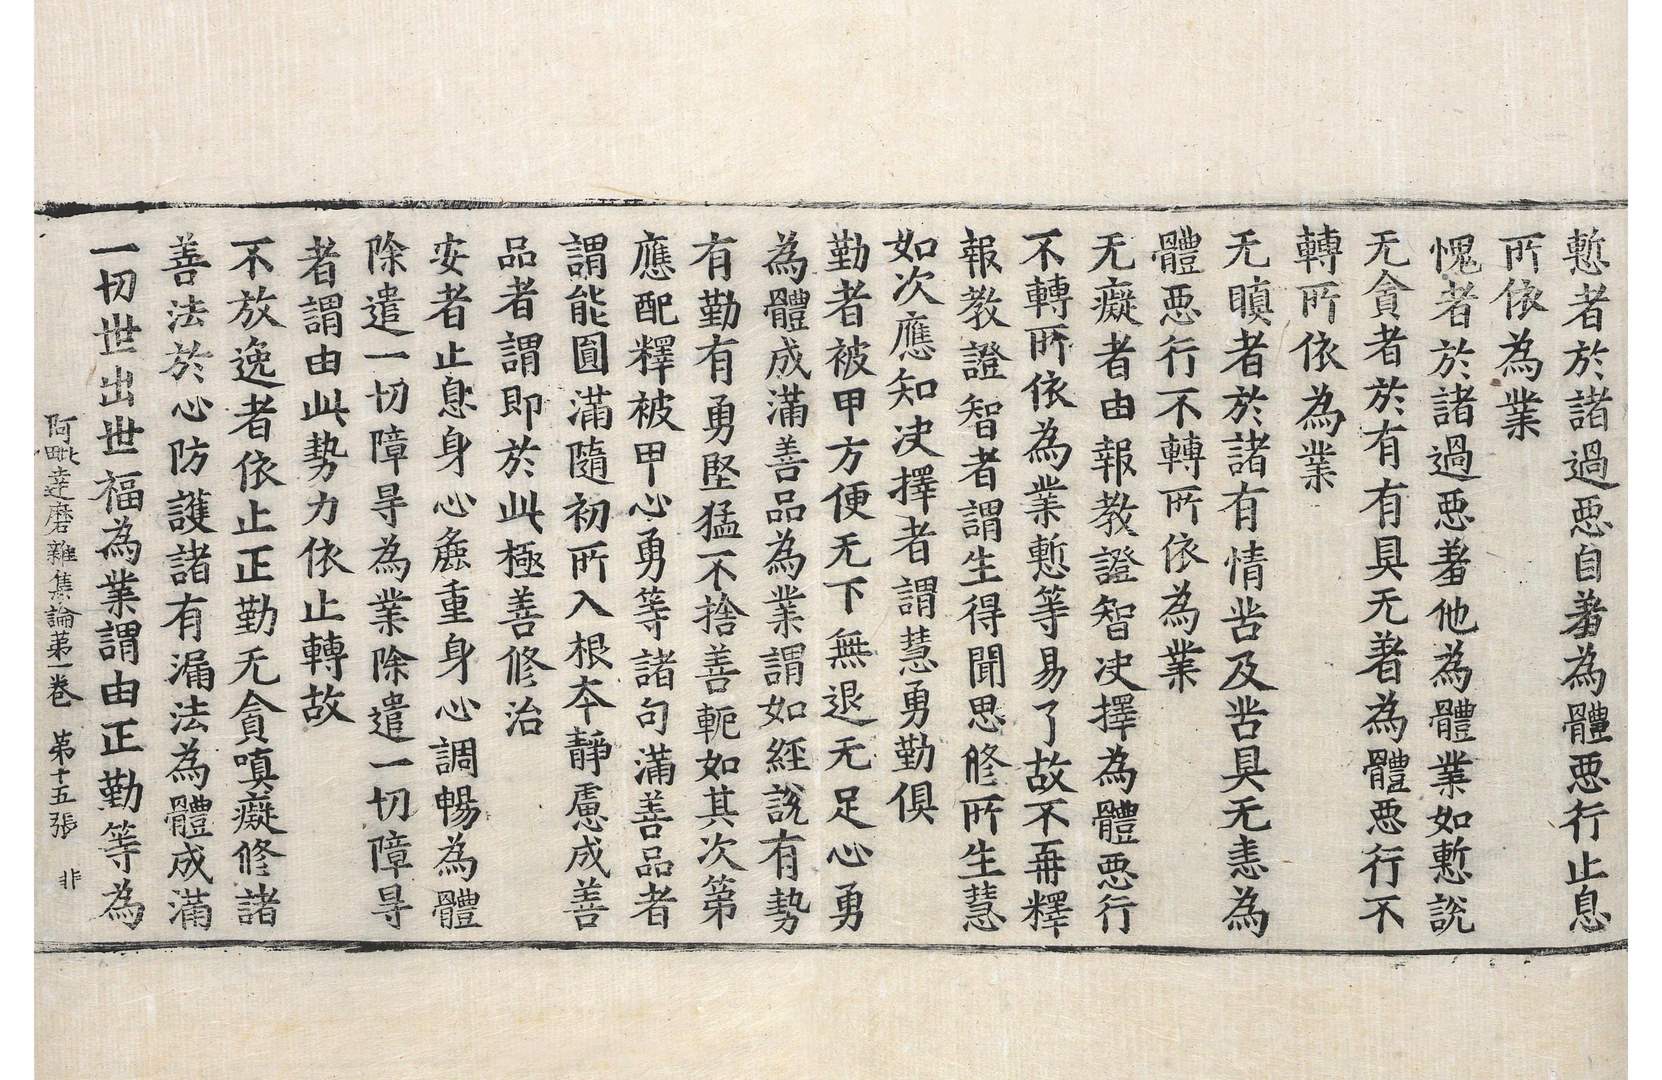 慙者於諸過惡自羞為體惡行止息
所依為業
愧者於諸過惡羞他為體業如慙說
无貪者於有有具无著為體惡行不
轉所依為業
无瞋者於諸有情苦及苦具无恚為
體惡行不轉所依為業
无癡者由報教證智决擇為體惡行
不轉所依為業慙等易了故不再釋
報教證智者謂生得聞思修所生慧
如次應知决擇者謂慧勇勤俱
勤者被甲方便无下無退无足心勇
為體成滿善品為業謂如經說有勢
有勤有勇堅猛不捨善軛如其次第
應配釋被甲心勇等諸句滿善品者
謂能圓滿隨初所入根本靜慮成善
品者謂即於此極善修治
安者止息身心麁重身心調暢為體
除遣一切障㝵為業除遣一切障㝵
者謂由此勢力依止轉故
不放逸者依止正勤无貪嗔癡修諸
善法於心防護諸有漏法為體成滿
一切世出世福為業謂由正勤等為
阿毗達磨雜集論第一卷 第十五張 非